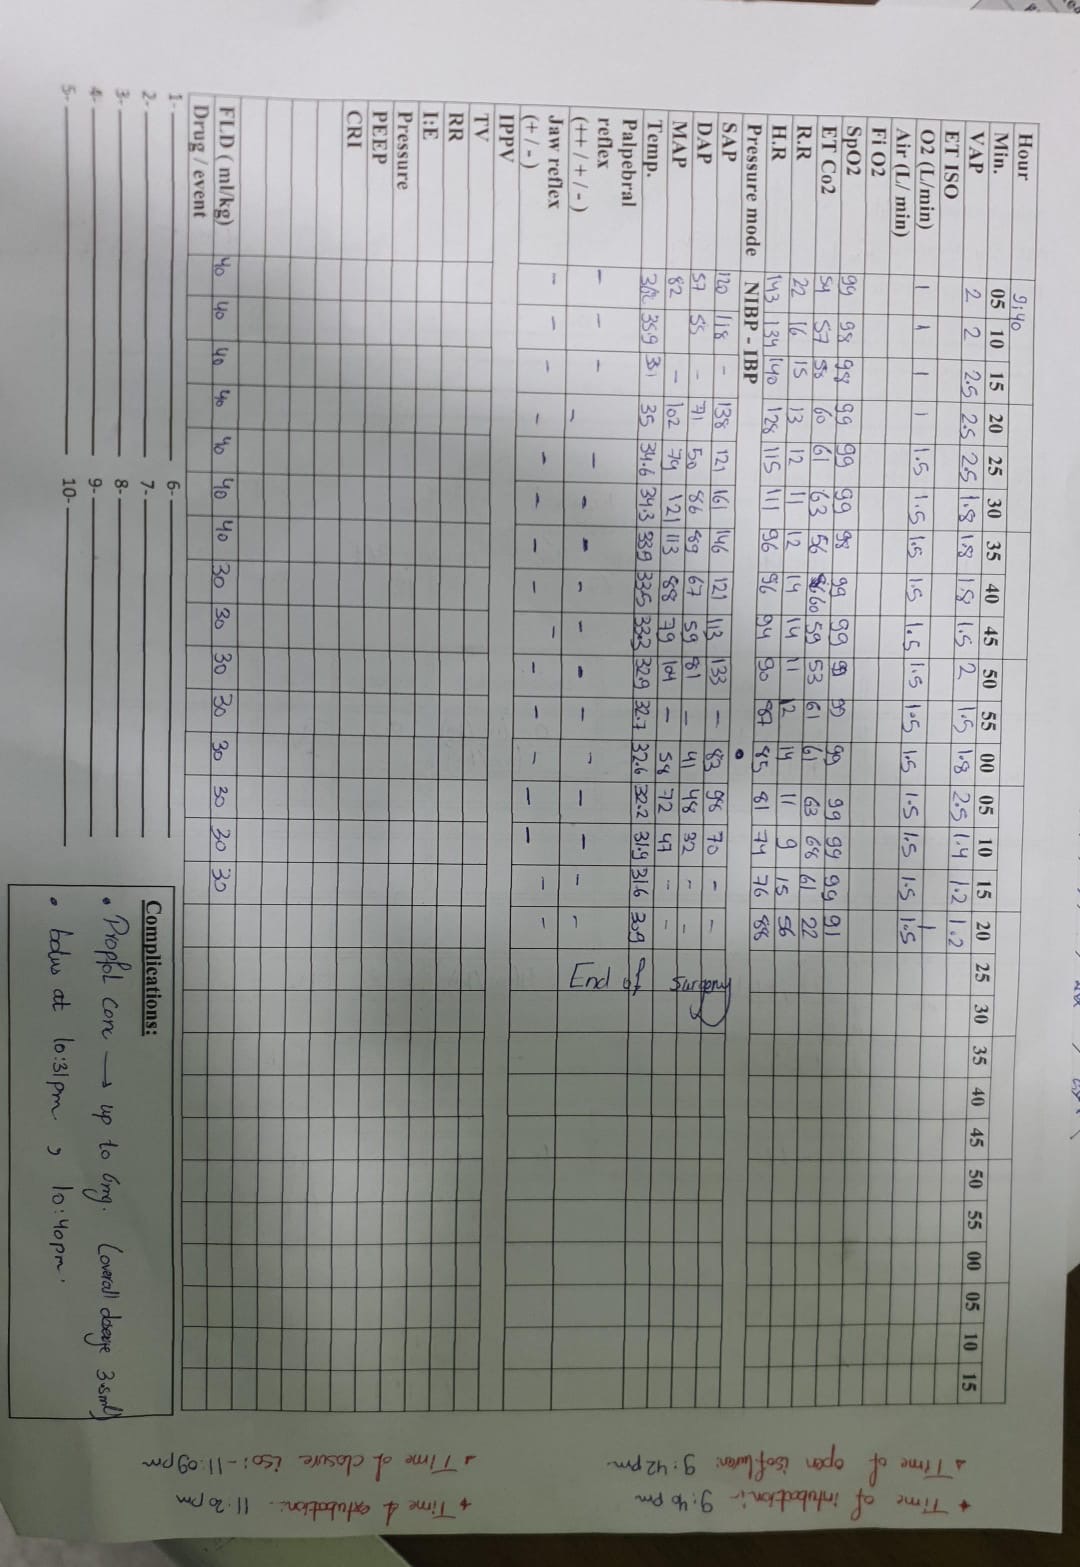 Hour 9:40
Min. 05 10 15 20 25 30 35 40 45 50 55 00 05 10 15 20 25 30 35 40 45 50 55 00 05 10 15
VAP 2 2 2.5 2.5 2.5 1.8 1.8 1.8 1.5 2 1.5 1.8 2.5 1.4 1.2 1.2
ET ISO
O2 (L/min) 1 1 1 1 1.5 1.5 1.5 1.5 1.5 1.5 1.5 1.5 1.5 1.5 1.5 1.5
Air (L/ min)
Fi O2
SpO2 99 98 98 99 99 99 98 99 99 99 99 99 99 99 99 91
ET Co2 54 57 58 60 61 63 56 60 59 53 61 61 63 68 61 22
R.R 22 16 15 13 12 11 12 14 14 11 12 14 11 9 15 56
H.R 143 134 140 128 115 111 96 96 94 90 87 85 81 74 76 88
Pressure mode NIBP - IBP
SAP 120 118 - 138 121 161 146 121 113 133 - 83 98 70 - -
DAP 57 55 - 71 50 86 89 67 59 81 - 41 48 32 - -
MAP 82 - 102 79 121 113 88 79 104 - 58 72 47 - -
Temp. 35.9 35 34.6 34.3 33.9 33.5 33.3 32.9 32.7 32.6 32.2 31.9 31.6
Palpebral
reflex
(++ / + / - ) - - - - - - - - - - - - - - - -
Jaw reflex
(+ / - ) - - - - - - - - - - - - - - - -
End of surgery
IPPV
TV
RR
I:E
Pressure
PEEP
CRI
FLD ( ml/kg) 40 40 40 40 40 40 40 30 30 30 30 30 30 30 30
Drug / event
1- 6-
2- 7-
3- 8-
4- 9-
5- 10-
Complications:
• Propofol conc → up to 6mg. (overall dosage 3.5ml)
• bolus at 10:31pm , 10:40pm.
Time of intubation :- 9:40 pm
Time of open isofluran: 9:42pm.
Time of extubation:- 11:20pm
Time of closure iso:- 11:09pm